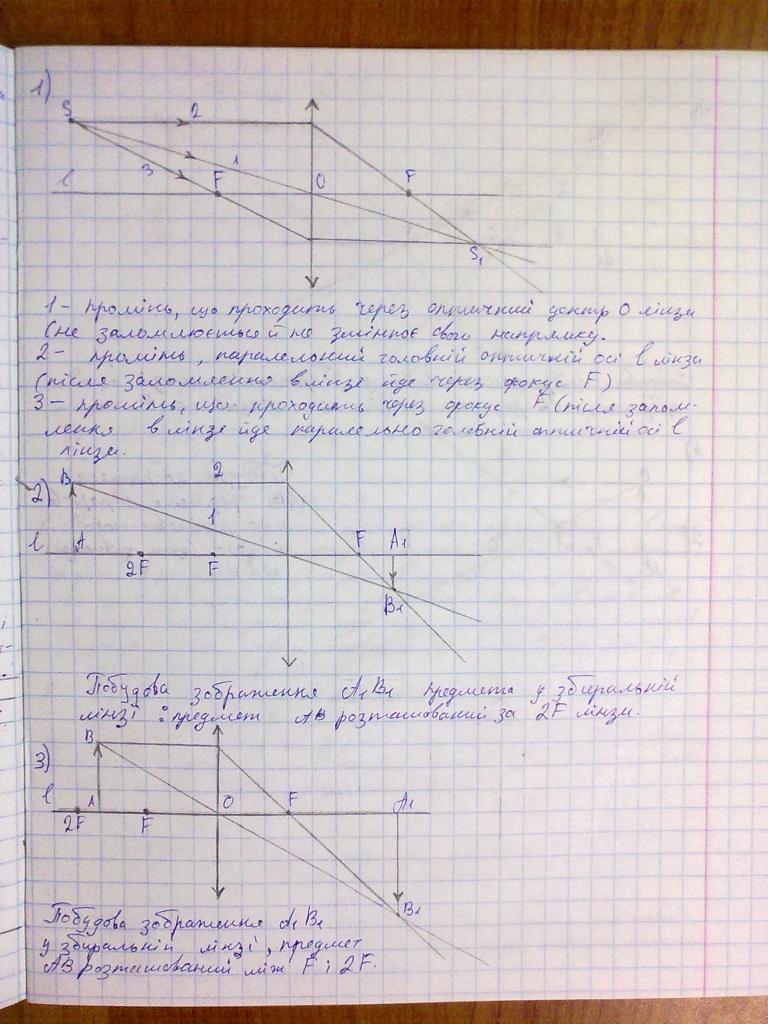 1)
S 2
3 1
l F O F
S₁
1 – промінь, що проходить через оптичний центр О лінзи
(не заломлюється й не змінює свого напрямку.
2 – промінь, паралельний головній оптичній осі l лінзи
(після заломлення в лінзі йде через фокус F)
3 – промінь, що проходить через фокус F (після залом-
лення в лінзі йде паралельно головній оптичній осі l
лінзи.
2) B 2
1
l A 2F F F A₁
B₁
Побудова зображення A₁B₁ предмета у збиральній
лінзі: предмет AB розташований за 2F лінзи.
3) B
l 2F A F O F A₁
B₁
Побудова зображення A₁B₁
у збиральній лінзі, предмет
AB розташований між F і 2F.